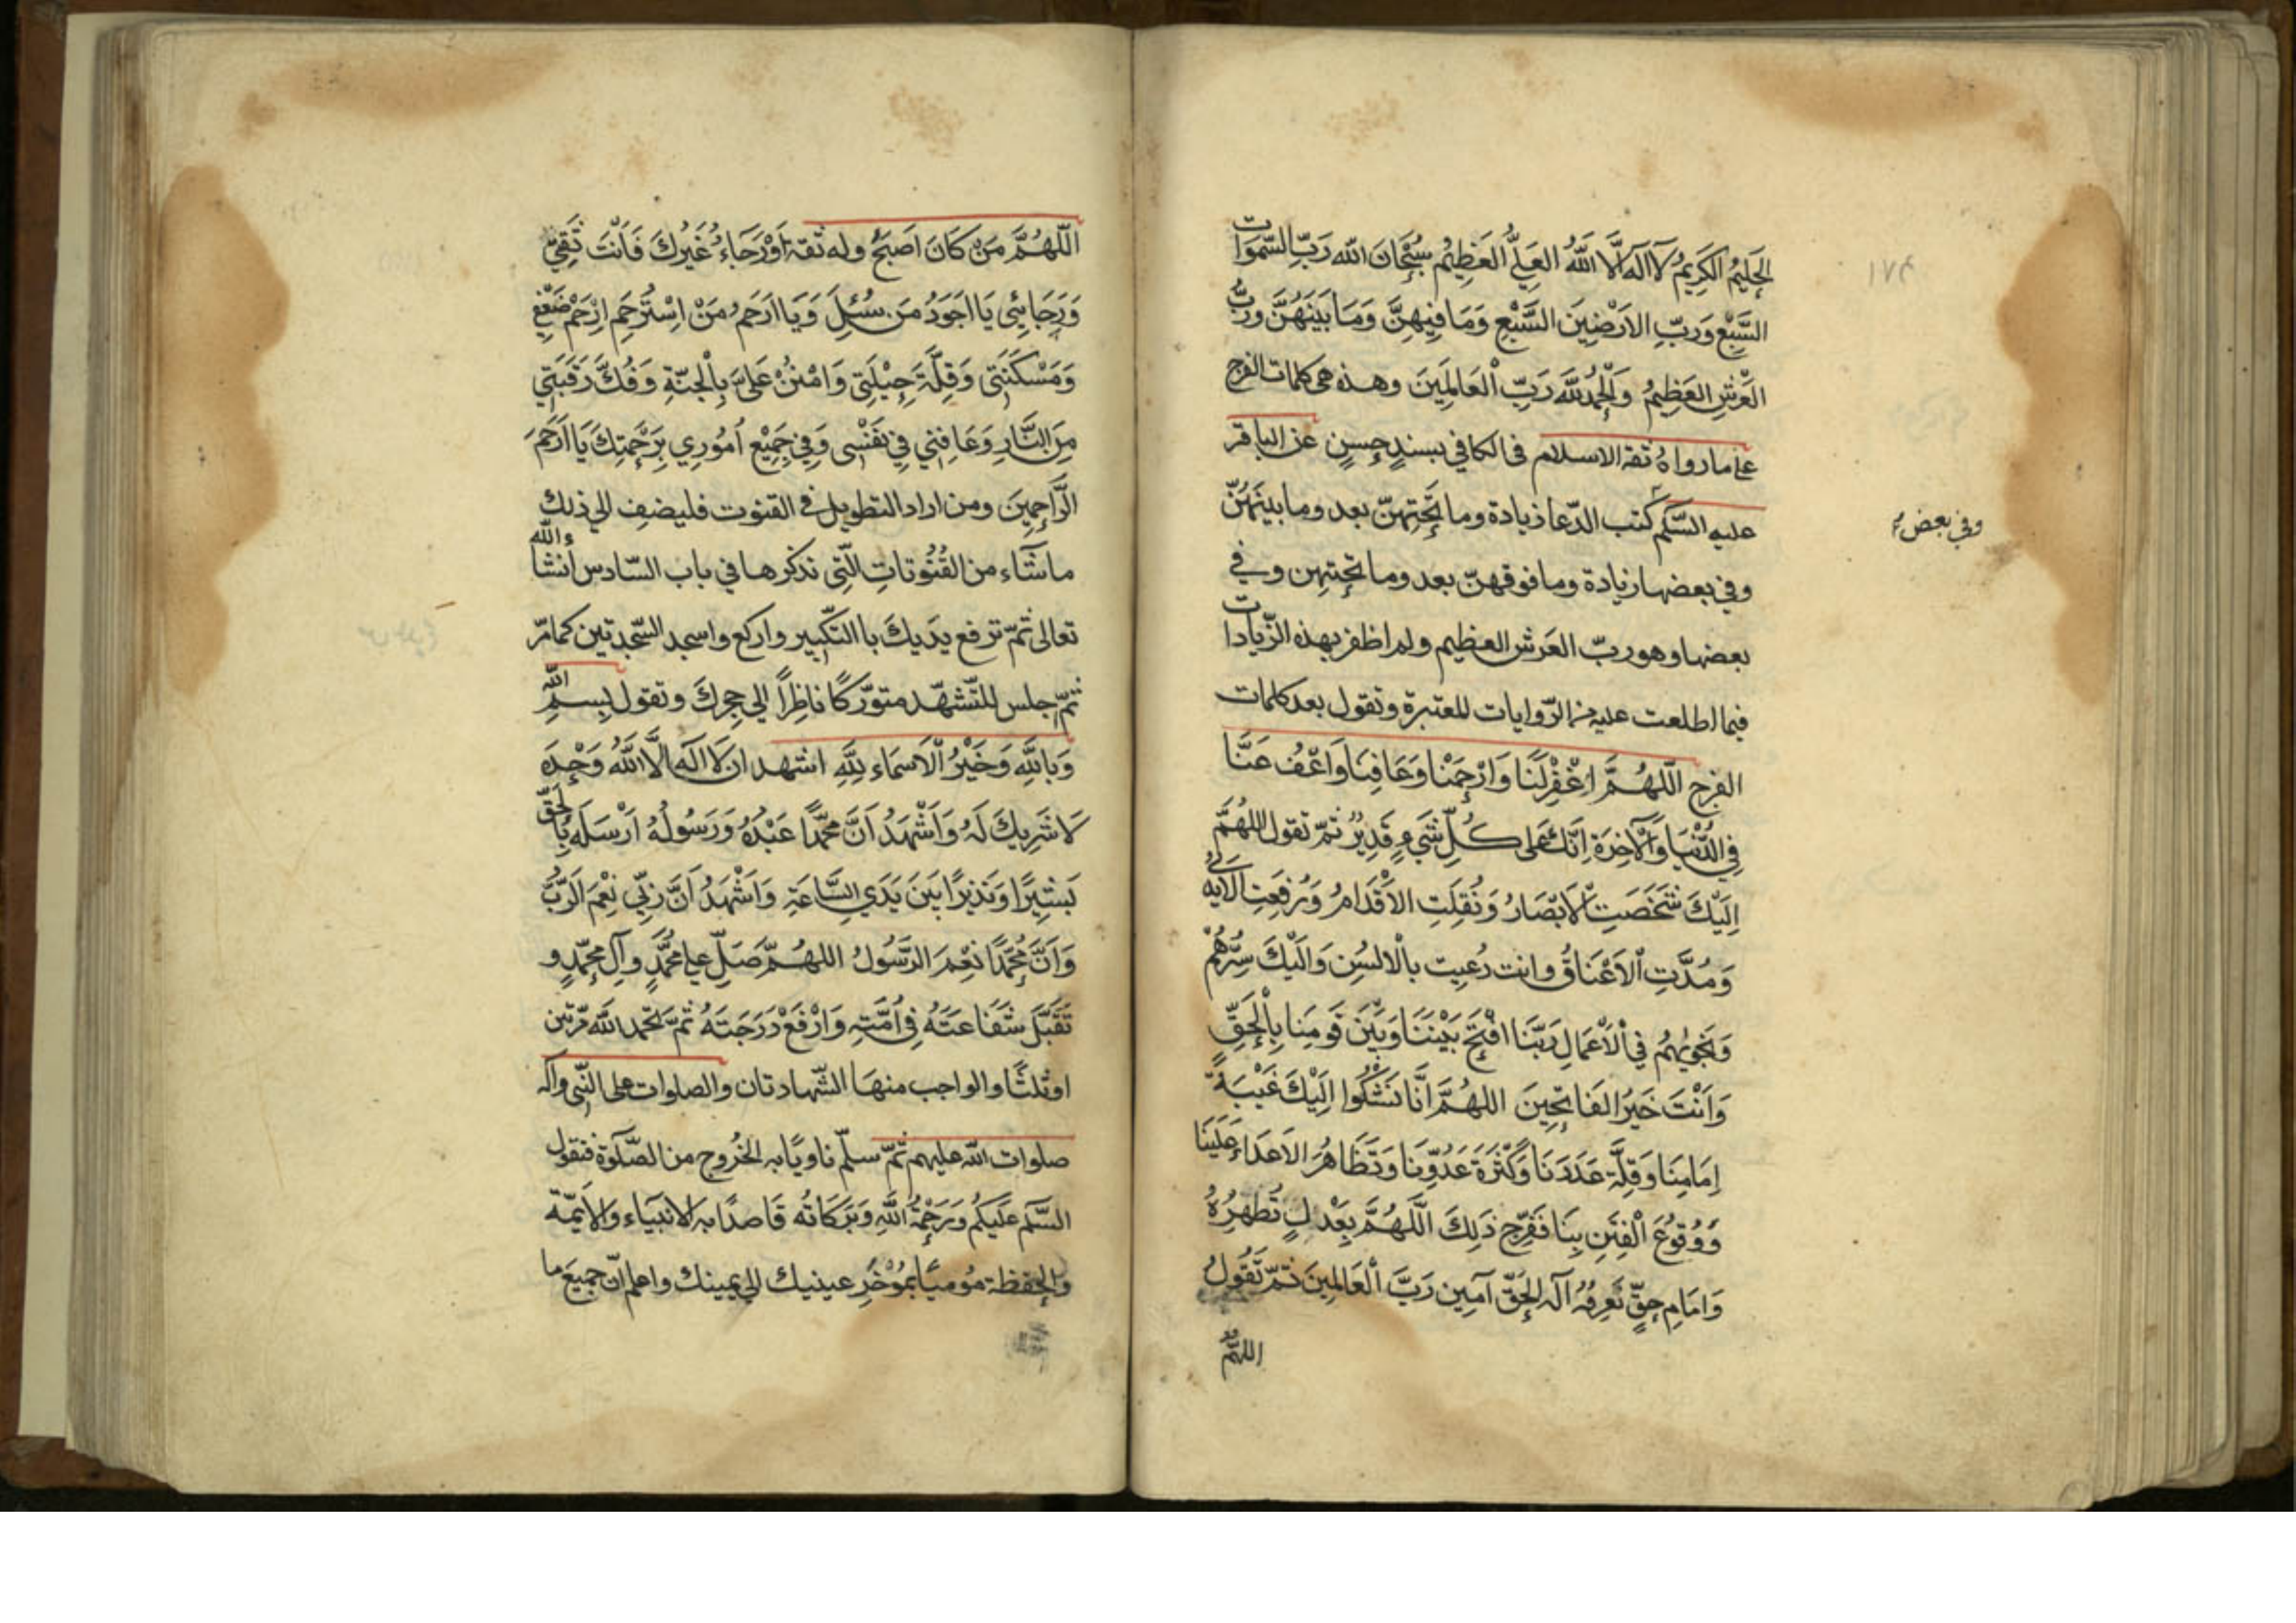 الحَلِيمُ الكَرِيمُ لَا اِلَهَ اِلَّا اللَّهُ العَلِيُّ العَظِيمُ سُبْحَانَ اللَّه رَبِّ السَّموَات
السَّبْعِ وَرَبِّ الاَرَضِينَ السَّبْعِ وَمَا فِيهِنَّ وَمَا بَيْنَهُنَّ وَرَبُّ
العَرْشِ العَظِيمُ وَالْحَمْدُ لِلَّه رَبِّ الْعَالَمِينَ وهذه هى كلمات الفرج
على ما رواهُ ثقة الاسلام فى الكافي بسندٍ حسنٍ عن الباقر
عليه السّلم كتب الدّعا زيادة وما تَحْتِهنّ بعد وما بينَهُنّ
وفي بعض
وفي بعضها زيادة وما فوقهنّ بعد وما تحتهن وفي
بعضها وهو ربّ العَرش العظيم ولم اظفر بهذه الزّيادات
فيما اطلعت عليه من الرّوايات المعتبرة وتقول بعد كلمات
الفرج اَللّهُمَّ اغْفِرْلَنَا وَارْحَمْنا وَعَافِنَا وَاعْفُ عَنَّا
فِي الدُّنْيَا وَالْآخِرَةِ اِنَّكَ عَلى كُلِّ شَيءٍ قَدِيْرٌ ثمّ تقول اللهُمَّ
اِلَيْكَ شَخَصَتِ الاَبْصَارُ وَنُقِلَتِ الاَقْدَامُ وَرُفِعَتِ الاَيْدِي
وَمُدَّتِ الْاَعْنَاقُ وانت دُعِيت بالْالسُنِ وَالَيْكَ سِرُّهُمْ
وَنَجْوٰيهُمْ فِي الْاَعْمَالِ رَبَّنَا افْتَحْ بَيْنَنَا وَبَيْنَ قَومِنا بِالْحَقِّ
وَاَنْتَ خَيرُ الفَاتِحِينَ اللهُمَّ اِنَّا نَشْكُوا اِلَيْكَ غَيْبَةَ
اِمَامِنَا وَقِلَّةَ عَدَدِنَا وَكَثْرَةَ عَدُوِّنَا وَتَظَاهُرَ الاَعدَاءِ عَلَيْنَا
وَوُقوُعَ الْفِتَنِ بِنَا فَفَرِّج ذَلِكَ اَللّهُمَّ بِعَدْلٍ تُظهِرُهُ
وَاِمَامِ حقٍّ نَعْرِفُهُ اِلٰهَ الحَقّ آمين رَبَّ الْعَالَمِينَ ثمّ تَقُولُ
اللهُمَّ
اَللّهُمَّ مَنْ كَانَ اَصَبحَ وله ثقة اَوْ رَجَاءُ غَيْرُكَ فَاَنْتَ ثِقَتِيْ
وَرَجَائِى يَا اَجوَدُ مَن سُئِلَ وَيَا اَرحَمُ مَنْ اِسْتُرحِمِ اِرْحَمْ ضَعْفِي
وَمَسْكَنَتي وَقِلَّةَ حِيْلَتِى وَامْنُنْ عَلَىَّ بِالْجَنّةِ وَفُكَّ رَقَبَتِي
مِنَ النَّارِ وَعَافِنِي فِي نَفْسِى وَفِي جَمِيْعِ اُمُورِي بِرَحْمَتِكَ يَا اَرحَمَ
الرَّاحِمِينَ ومن اراد التطويل في القنوت فليضف الى ذلك
ماشَاء من القُنُوتاتِ الّتِى نذكرها في باب السّادس انشاء الله
تعالى ثمّ ترفع يديك با التكبير واركع واسجد السّجدتين كما مرّ
ثمّ جلس للتّشهّد متوّركًا ناظِراً الى حجرك وتقول بِسمِ الله
وَبِاللهِ وَخَيْرُ الْاَسمَاء لِلهِ اشهد ان لَا اِلَهَ اِلَّا اللهُ وَحْدَهُ
لَا شَرِيكَ لَهُ وَاَشْهَدُ اَنَّ مُحَمَّدًا عَبْدُهُ وَرَسُولُهُ اَرْسَلَهُ بِالْحَقِّ
بَشِيرًا وَنَذِيرًا بَيْنَ يَدَيِ السَّاعَةِ وَاَشْهَدُ اَنَّ رَبِّي نِعْمَ الرَّبُّ
وَاَنَّ مُحَمَّدًا نِعْمَ الرَّسُولُ اللهُمّ صَلِّ على محُمَّدٍ وآلِ محمّدٍ و
تَقَبَّل شَفَاعَتَهُ فِى اُمَّتِهِ وَارْفَعْ دَرَجَتَهُ ثمّ تحمّد الله مرّتين
اوثلثًا والواجب منهَا الشّهادتان والصلوات على النّبى وآله
صلوات الله عليهم ثمّ سلّم ناويًا به الخُروج من الصّلوة فتقول
السّلم عَلَيكم وَرَحْمَةُ اللهِ وَبَرَكَاتُه قَاصدًا به الانبياء والائمّة
والحفظة مُومئًا بمُؤخَرِ عينيك الى يمينك واعلم انّ جميعَ ما